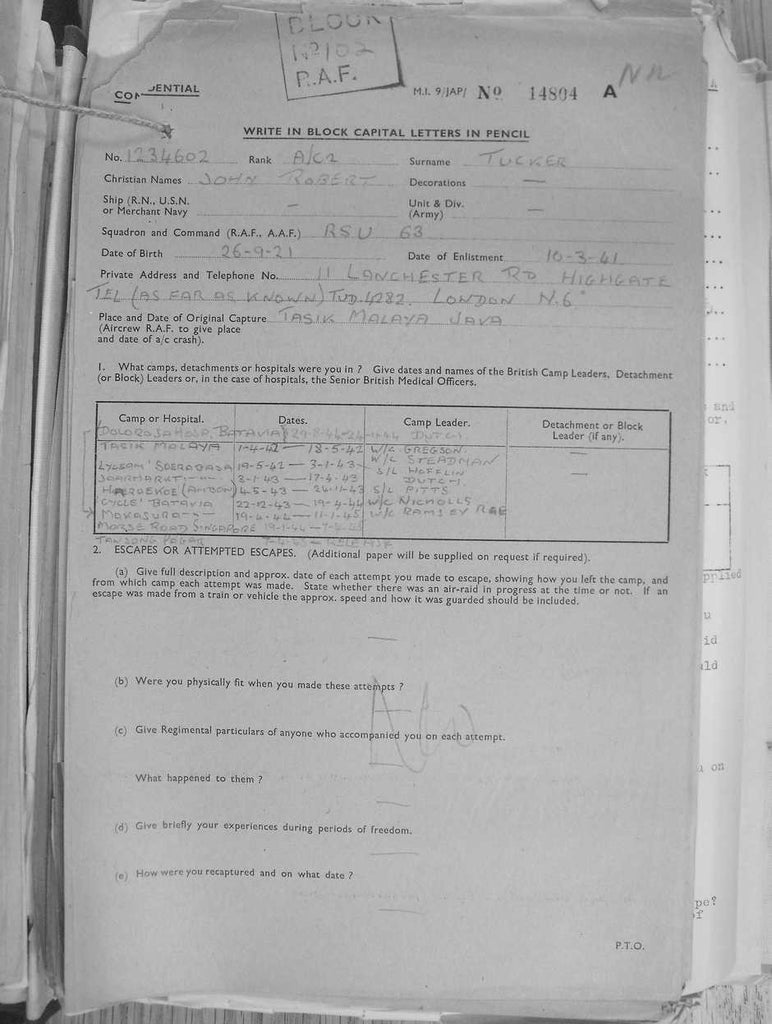 BLOCK
Nº 102
R.A.F.
NR
CONFIDENTIAL
M.I. 9/JAP/ No 14804 A
WRITE IN BLOCK CAPITAL LETTERS IN PENCIL
No. 1234602 Rank A/C2 Surname TUCKER
Christian Names JOHN ROBERT Decorations —
Ship (R.N., U.S.N. or Merchant Navy — Unit & Div. (Army) —
Squadron and Command (R.A.F., A.A.F.) RSU 63
Date of Birth 26-9-21 Date of Enlistment 10-3-41
Private Address and Telephone No. 11 LANCHESTER RD HIGHGATE
TEL (AS FAR AS KNOWN) TUD. 4282. LONDON N.6
Place and Date of Original Capture TASIK MALAYA JAVA
(Aircrew R.A.F. to give place
and date of a/c crash).
1. What camps, detachments or hospitals were you in ? Give dates and names of the British Camp Leaders, Detachment
(or Block) Leaders or, in the case of hospitals, the Senior British Medical Officers.
Camp or Hospital. Dates. Camp Leader. Detachment or Block Leader (if any).
DOLOROSA HOSP. BATAVIA DUTCH
TASIK MALAYA 1-4-42 — 18-5-42 W/C GREGSON —
W/C STEADMAN
LYCEUM SOERABAJA 19-5-42 — 3-1-43 S/L —
JAARMARKT 3-1-43 — 17-4-43 DUTCH
HAROEKOE (AMBON) 4-5-43 — 24-11-43 S/L PITTS
CYCLE BATAVIA 22-12-43 — 19-4-44 W/C NICHOLLS
MAKASURA 19-4-44 — 11-1-45 W/C RAMSEY RAE
MORSE ROAD SINGAPORE
TANJONG PAGAR — RELEASE
2. ESCAPES OR ATTEMPTED ESCAPES. (Additional paper will be supplied on request if required).
(a) Give full description and approx. date of each attempt you made to escape, showing how you left the camp, and
from which camp each attempt was made. State whether there was an air-raid in progress at the time or not. If an
escape was made from a train or vehicle the approx. speed and how it was guarded should be included.
—
(b) Were you physically fit when you made these attempts ?
(c) Give Regimental particulars of anyone who accompanied you on each attempt.
—
What happened to them ?
—
(d) Give briefly your experiences during periods of freedom.
—
(e) How were you recaptured and on what date ?
—
P.T.O.